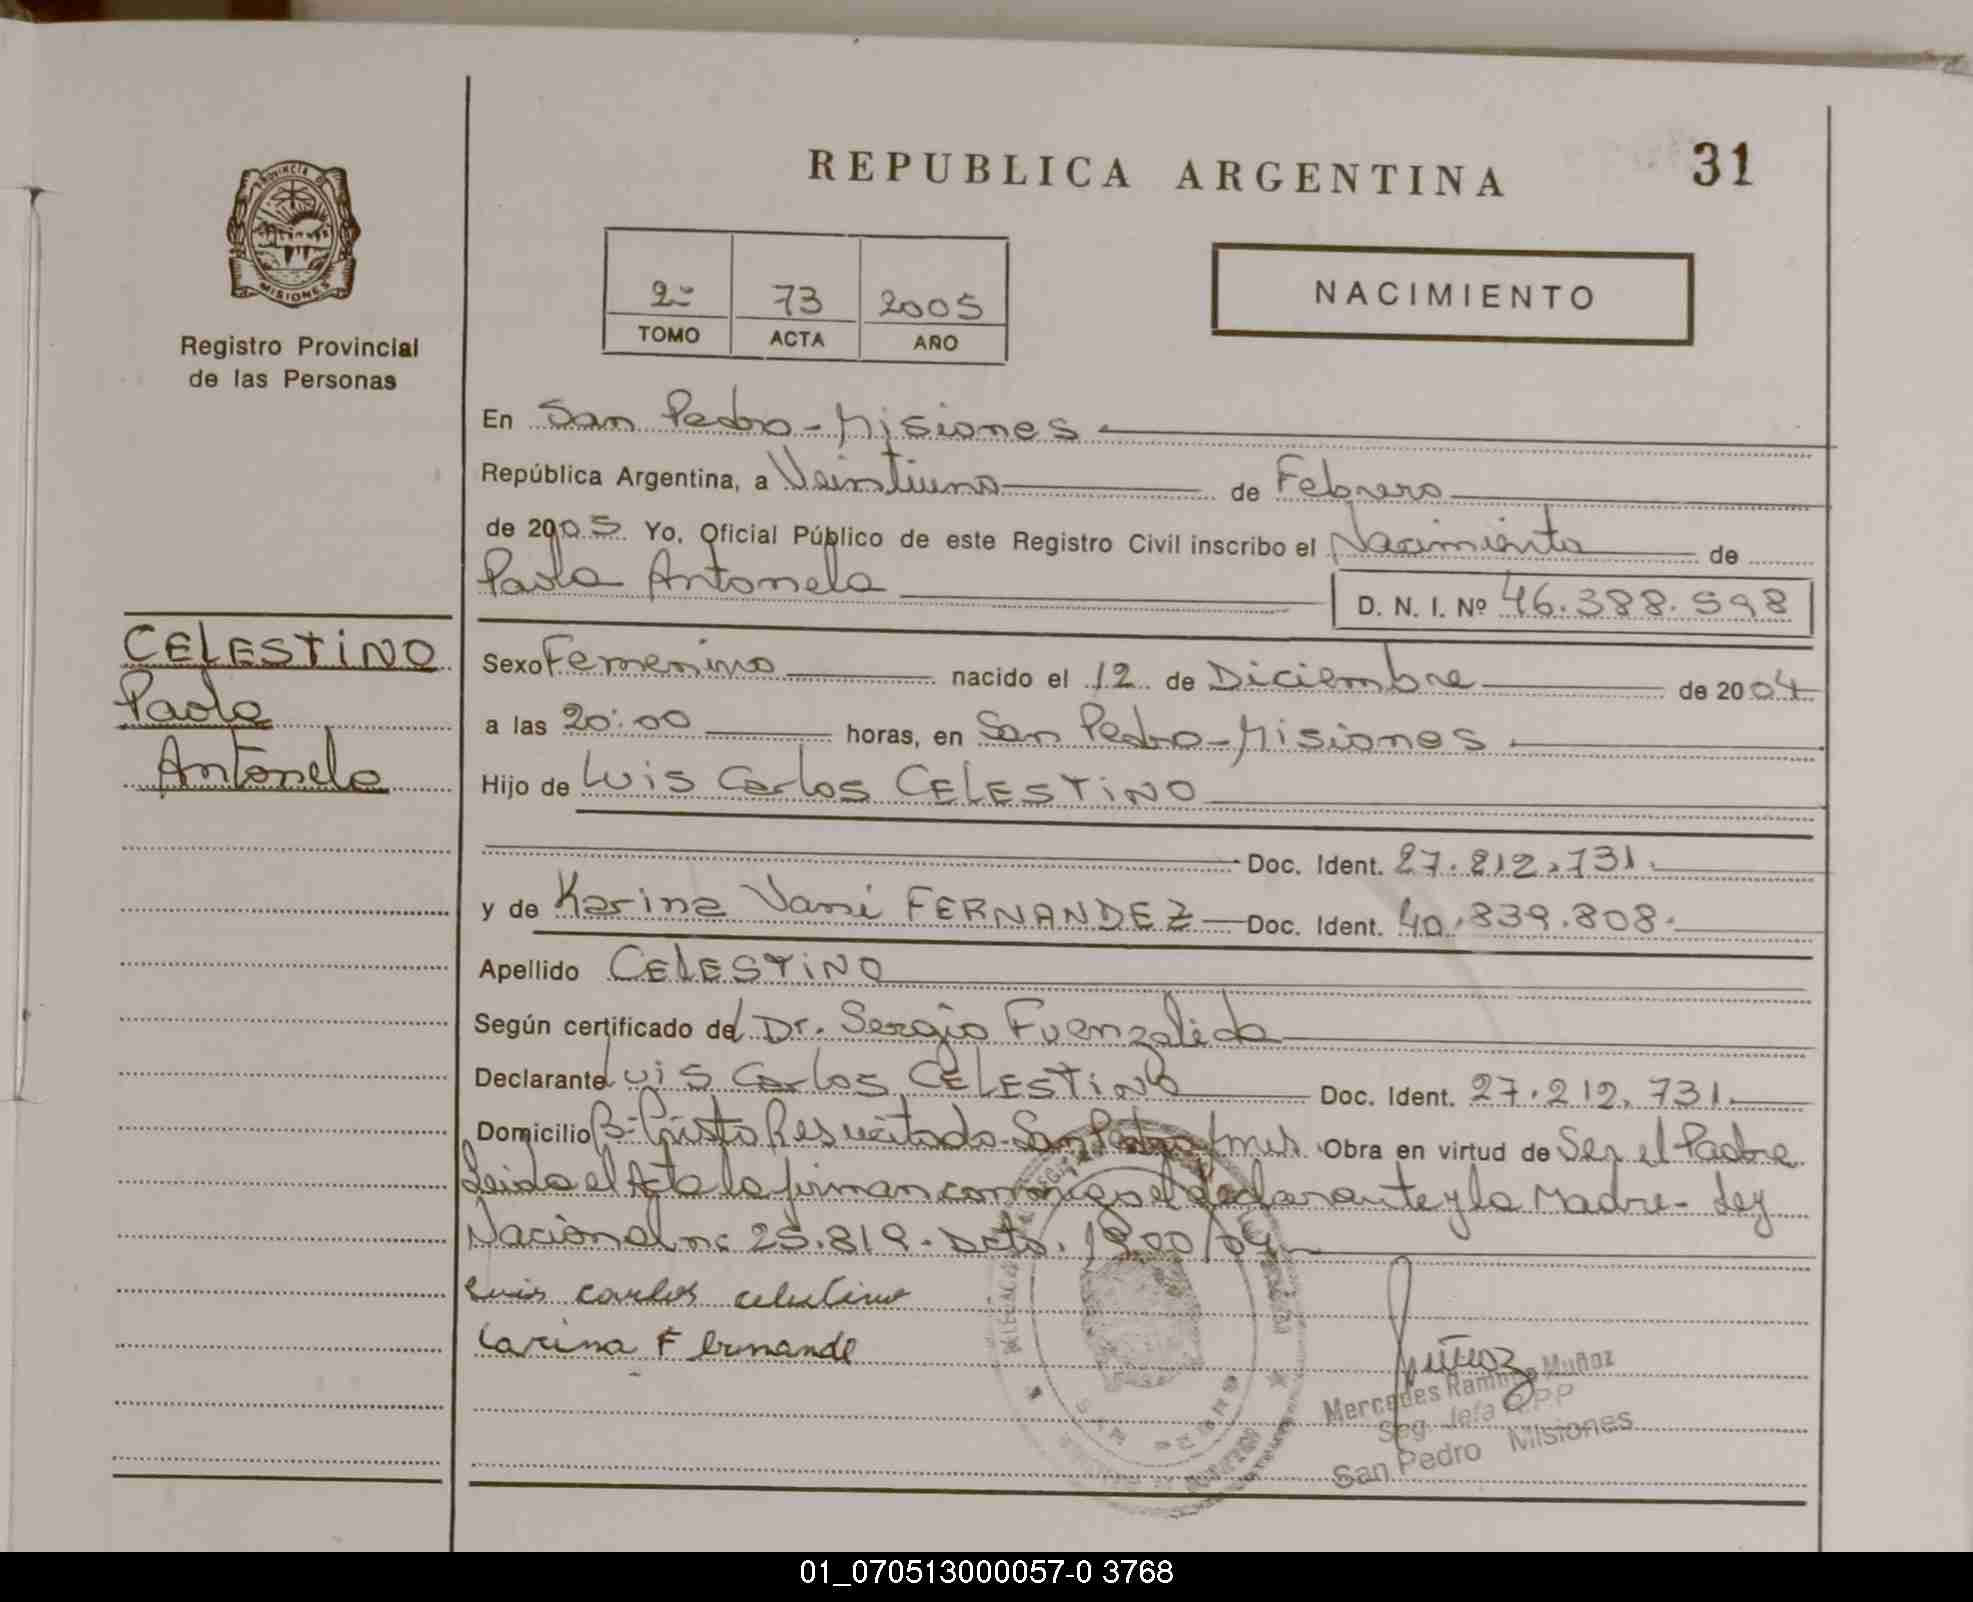 REPUBLICA ARGENTINA
31
PROVINCIA DE
MISIONES
Registro Provincial
de las Personas
2º 73 2005
TOMO ACTA AÑO
NACIMIENTO
En San Pedro - Misiones
República Argentina, a Veintiuno de Febrero
de 2005 Yo, Oficial Público de este Registro Civil inscribo el Nacimiento de
Paola Antonela D. N. I. Nº 46.388.598
CELESTINO
Paola
Antonela
Sexo Femenino nacido el 12 de Diciembre de 2004
a las 20:00 horas, en San Pedro - Misiones
Hijo de Luis Carlos CELESTINO
Doc. Ident. 27.212.731.
y de Karina Vani FERNANDEZ Doc. Ident. 40.839.808.
Apellido CELESTINO
Según certificado del Dr. Sergio Fuenzalida
Declarante Luis Carlos CELESTINO Doc. Ident. 27.212.731.
Domicilio Bº Cristo Resucitado - San Pedro Mnes. Obra en virtud de Ser el Padre
Leida el Acta la firman conmigo el declarante y la Madre - Ley
Nacional nº 25.819. Dcto. 1900/04
Luis carlos celestino
Carina Fernande
Muñoz
Mercedes Ramona Muñoz
San Pedro Misiones
01_070513000057-0 3768